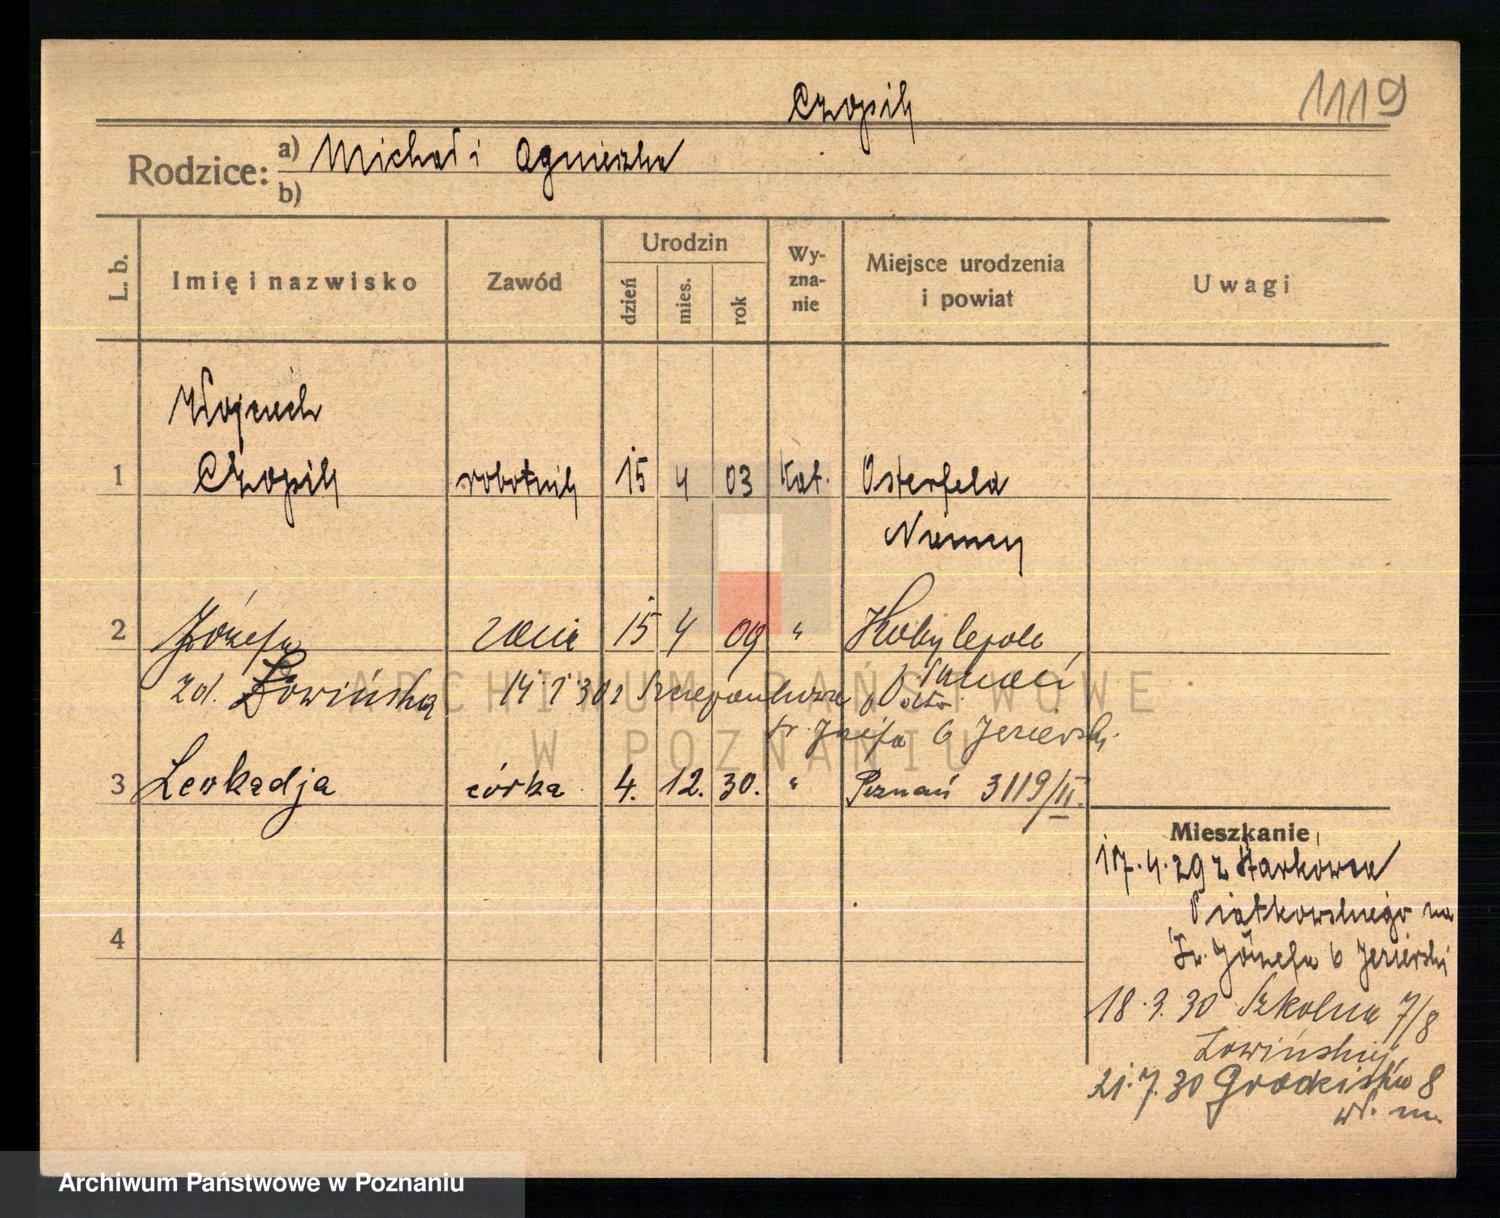 Czopik
1119
Rodzice: a) Michał i Agnieszka
b)
L. b.
Imię i nazwisko
Zawód
Urodzin
dzień
mies.
rok
Wy-
zna-
nie
Miejsce urodzenia
i powiat
Uwagi
Wojciech
1 Czopik robotnik 15 4 03 Kat. Osterfeld
Niemcy
2 Józefa 15 4 09 " Kobylepole
zd. Łowińska Poznań
św. Józefa 6 Jezierski
3 Leokadja córka 4. 12. 30. " Poznań 3119/II.
Mieszkanie
17.4.29 z Starkówca
Piątkowskiego na
Św. Józefa 6 Jezierski
4
18.3.30 Szkolna 7/8
Łowińskiej
21.7.30 Grodziska 8
wł. m.
ARCHIWUM PAŃSTWOWE
W POZNANIU
Archiwum Państwowe w Poznaniu